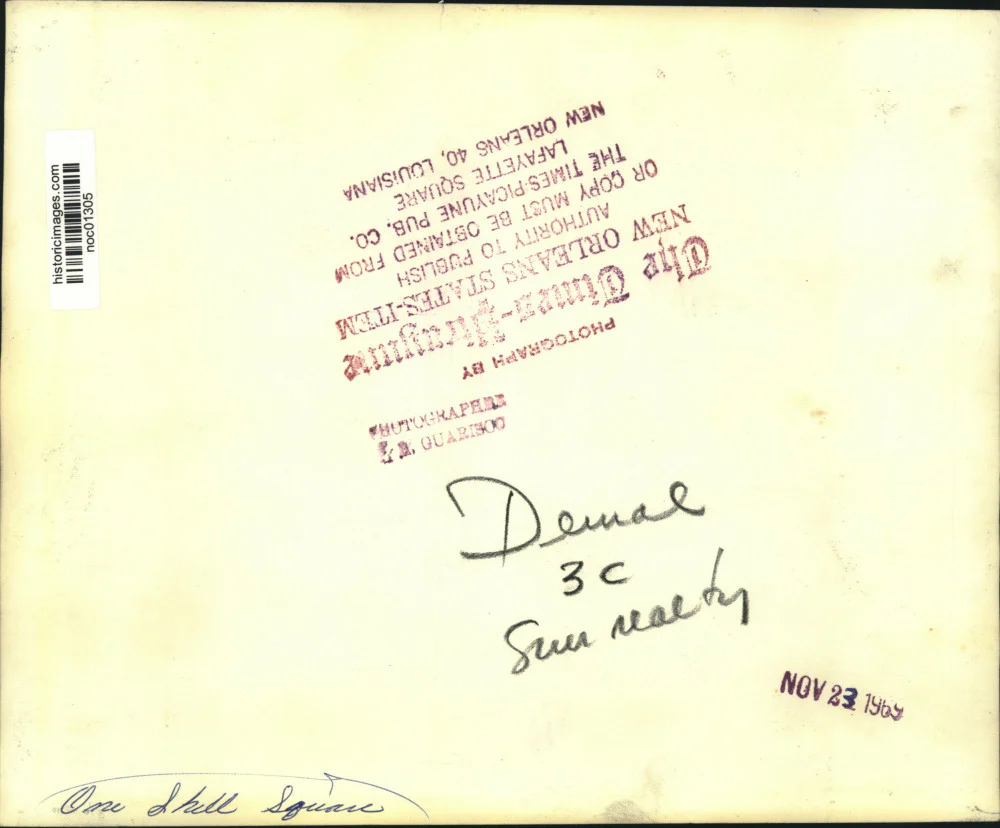 historicimages.com
noc01305
PHOTOGRAPH BY
The Times-Picayune
NEW ORLEANS STATES-ITEM
AUTHORITY TO PUBLISH
OR COPY MUST BE OBTAINED FROM
THE TIMES-PICAYUNE PUB. CO.
LAFAYETTE SQUARE
NEW ORLEANS 40, LOUISIANA
PHOTOGRAPHER
GUARISCO
3C
Sun realty
NOV 23 1969
One Shell Square